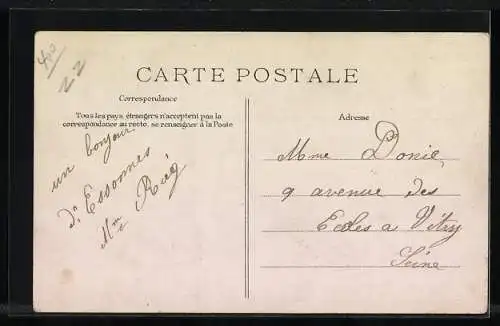 480
22
CARTE POSTALE
Correspondance
Tous les pays étrangers n'acceptent pas la
correspondance au recto, se renseigner à la Poste
un bonjour
d'Essonnes
Mme
Adresse
Mme Donie
9 avenue des
Ecoles a Vitry
Seine